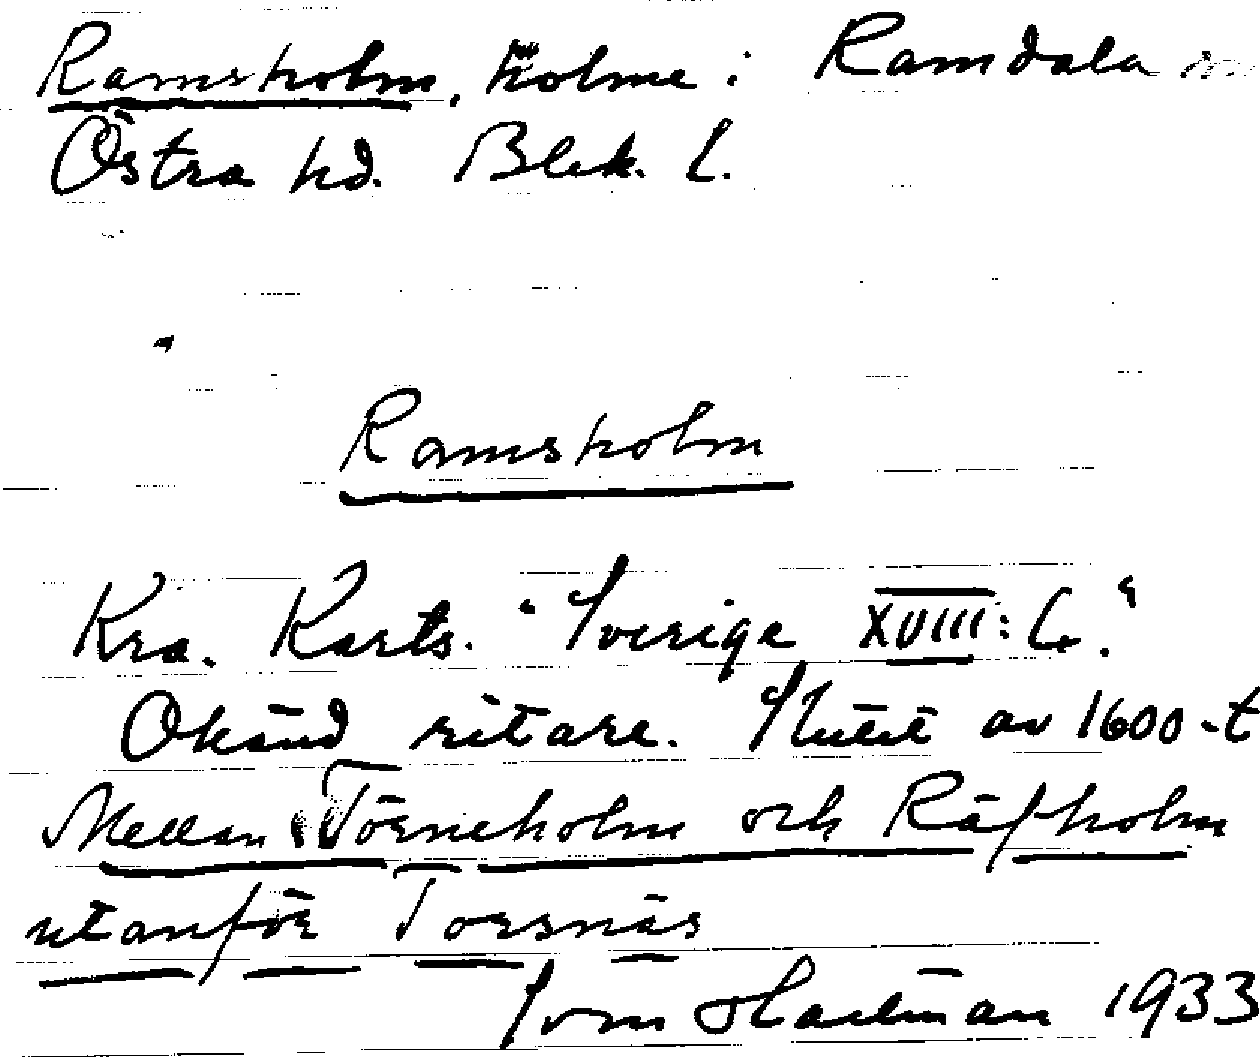 Ramsholm, holme i Ramdala sn
Östra hd. Blek. l.
Ramsholm
Kra. Karts. "Sverige XVIII: G."
Okänd ritare. Slutet av 1600-t
Mellan Törneholm och Räfholm
utanför Torsnäs
Sven Hallman 1933